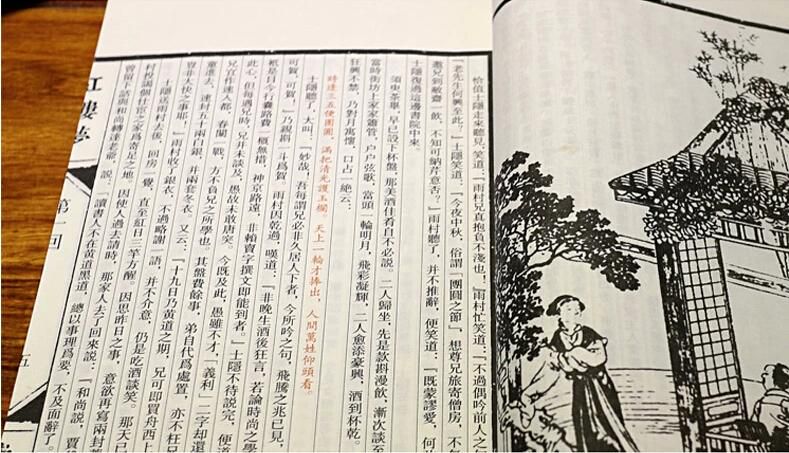 恰值士隱走來聽見，笑道：「雨村兄真抱負不淺也！」雨村忙笑道：「不過偶吟前人之
老先生何興至此？」士隱笑道：「今夜中秋，俗謂『團圓之節』，想尊兄旅寄僧房，不
邀兄到敝齋一飲，不知可納芹意否？」雨村聽了，並不推辭，便笑道：「既蒙謬愛，何
士隱復過這邊書院中來。
須臾茶畢，早已設下杯盤，那美酒佳肴自不必說。二人歸坐，先是款斟漫飲，漸次談至
當時街坊上家家簫管，戶戶弦歌，當頭一輪明月，飛彩凝輝，二人愈添豪興，酒到杯乾。
狂興不禁，乃對月寓懷，口占一絕云：
時逢三五便團圓，滿把清光護玉欄。天上一輪才捧出，人間萬姓仰頭看。
士隱聽了，大叫：「妙哉！吾每謂兄必非久居人下者，今所吟之句，飛騰之兆已見，
可賀，可賀。」乃親斟一斗爲賀。雨村因乾過，嘆道：「非晚生酒後狂言，若論時尚之學
衹是目今行囊路費一概無措，神京路遠，非賴賣字撰文即能到者。」士隱不待說完，便道
此心，但每遇兄時，兄并未談及，愚故未敢唐突。今既及此，愚雖不才，『義利』二字却還
兄宜作速入都，春闈一戰，方不負兄之所學也。其盤費餘事，弟自代爲處置，亦不枉兄
童進去，速封五十兩白銀，并兩套冬衣。又云：「十九日乃黃道之期，兄可即買舟西上
豈非大快之事耶！」雨村收了銀衣，不過略謝一語，并不介意，仍是吃酒談笑。那天已
士隱送雨村去後，回房一覺，直至紅日三竿方醒。因思昨日之事，意欲再寫兩封
村投謁個仕宦之家爲寄足之地。因使人過去請時，那家人去了回來說：「和尚說，賈
曾留下話與和尚轉達老爺，說：『讀書人不在黃道黑道，總以事理爲要，不及面辭了。
紅樓夢
第一回
五